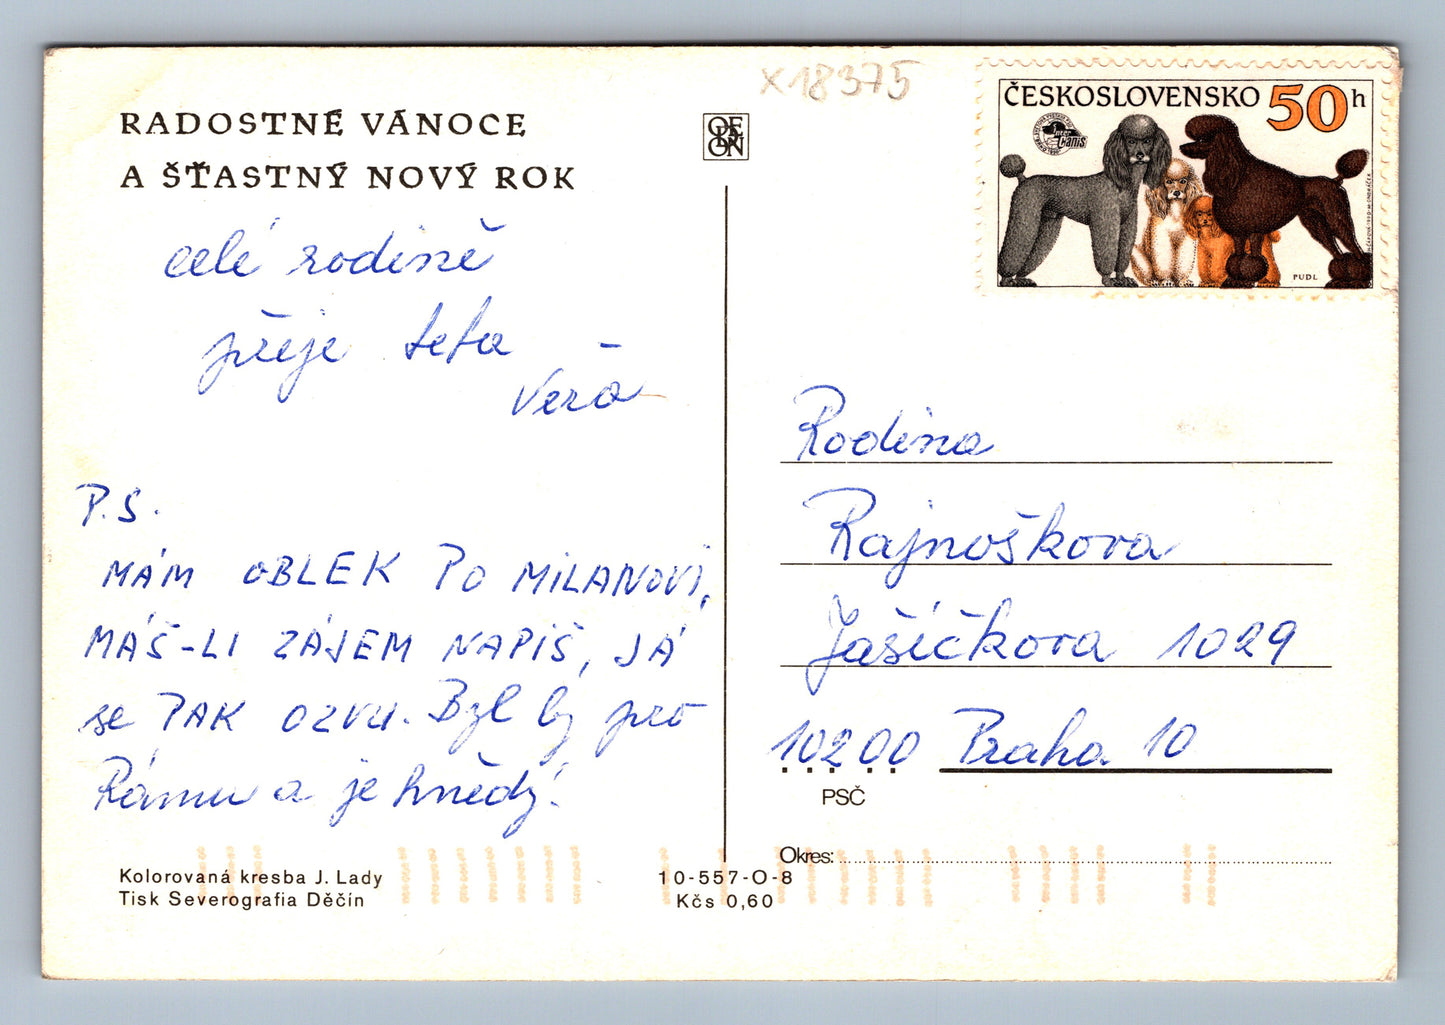 RADOSTNÉ VÁNOCE
A ŠŤASTNÝ NOVÝ ROK
celé rodině
přeje teta
Věra
P.S.
MÁM OBLEK PO MILANOVI,
MÁŠ-LI ZÁJEM NAPIŠ, JÁ
se PAK OZVU. Byl by pro
Rámu a je hnědý.
Kolorovaná kresba J. Lady
Tisk Severografia Děčín
10-557-O-8
Kčs 0,60
ODEON
X18375
ČESKOSLOVENSKO 50 h
Inter Canis
PUDL
Rodina
Rajnoškova
Jašíčkova 1029
10200 Praha 10
PSČ
Okres: